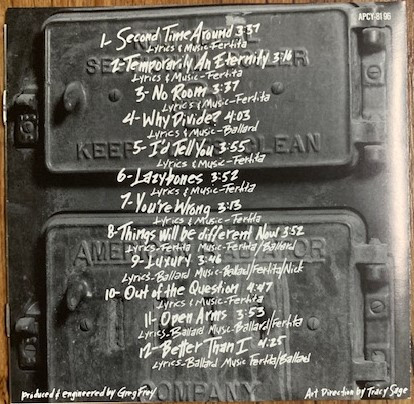 APCY-8196
1- Second Time Around 3:37
Lyrics & Music-Fertita
2- Temporarily An Eternity 3:16
Lyrics & Music-Fertita
3- No Room 3:37
Lyrics & Music-Fertita
4- Why Divide? 4:03
Lyrics & Music-Ballard
KEEP CLEAN
5- I'd Tell You 3:55
Lyrics & Music-Fertita
6- Lazybones 3:52
Lyrics & Music-Fertita
7- You're Wrong 3:13
Lyrics & Music-Fertita
8- Things will be different Now 3:52
Lyrics-Fertita Music-Fertita/Ballard
9- Luxury 3:46
Lyrics-Ballard Music-Ballad/Fertita/Nick
10- Out of the Question 4:47
Lyrics & Music-Fertita
11- Open Arms 3:53
Lyrics-Ballard Music-Ballard/Fertita
12- Better Than I 4:25
Lyrics-Ballard Music Fertita/Ballad
COMPANY
produced & engineered by Greg Frey
Art Direction by Tracy Sage